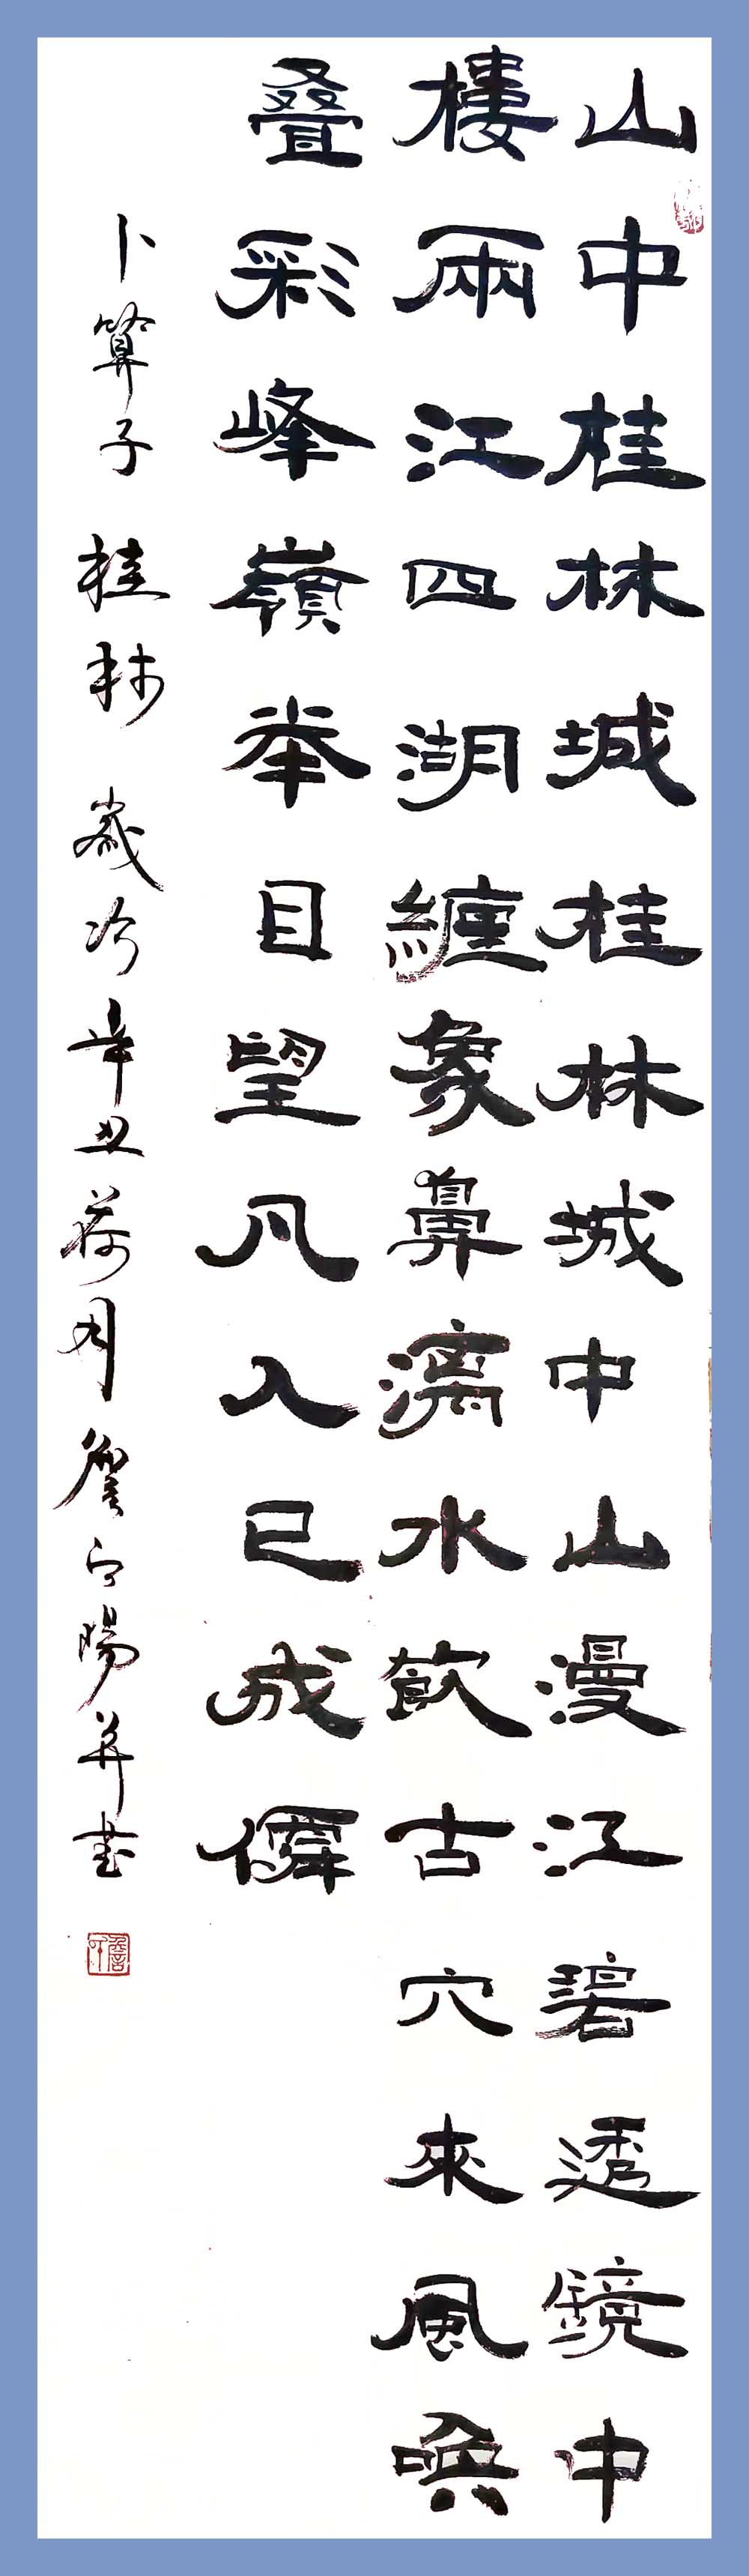 山中桂林城桂林城中山漫江碧透鏡中
樓兩江四湖纏象鼻漓水飲古穴來風喚
叠彩峰嶺举目望凡人已成僊
卜算子 桂林 歲冷辛丑荷月詹白陽并书